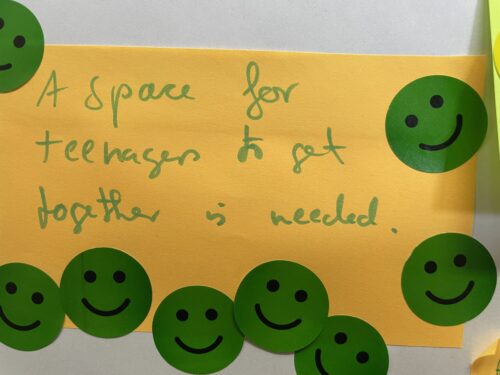 A space for
teenagers to get
together is needed.